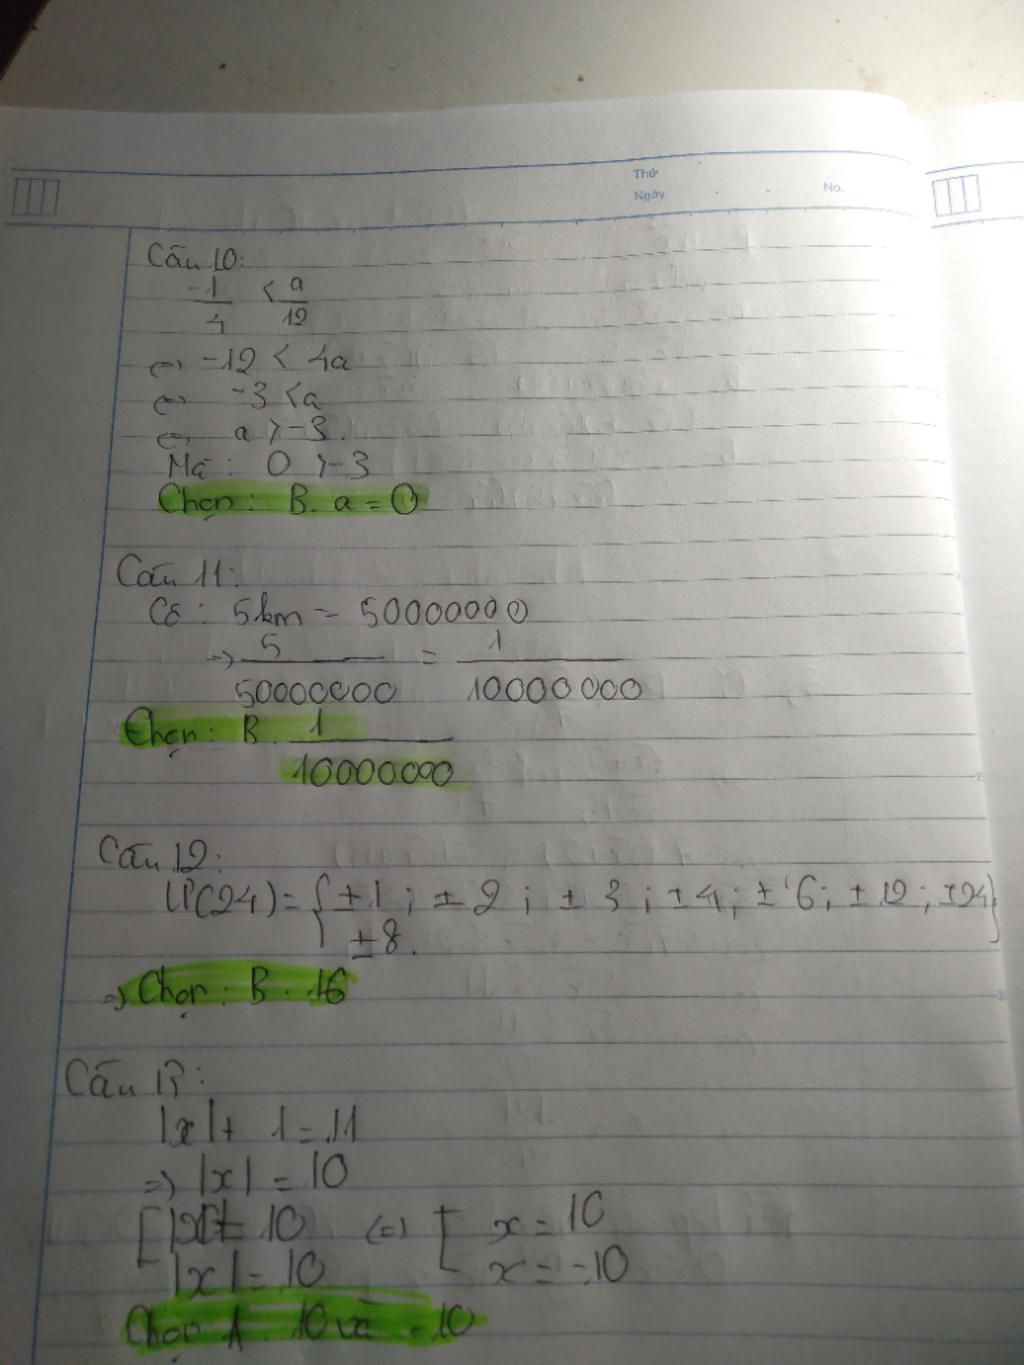 Thứ
Ngày
No.
Câu 10:
-1/4 < a/12
<=> -12 < 4a
<=> -3 < a
<=> a > -3.
Mà: 0 > -3
Chọn: B. a = 0
Câu 11:
Có: 5km = 50000000
=> 5/50000000 = 1/10000000
Chọn: B. 1/10000000
Câu 12:
Ư(24) = { ±1; ±2; ±3; ±4; ±6; ±12; ±24
±8. }
=> Chọn: B. 16
Câu 13:
|x| + 1 = 11
=> |x| = 10
[ |x| = 10 <=> [ x = 10
|x| = 10 x = -10
Chọn A. 10 và -10